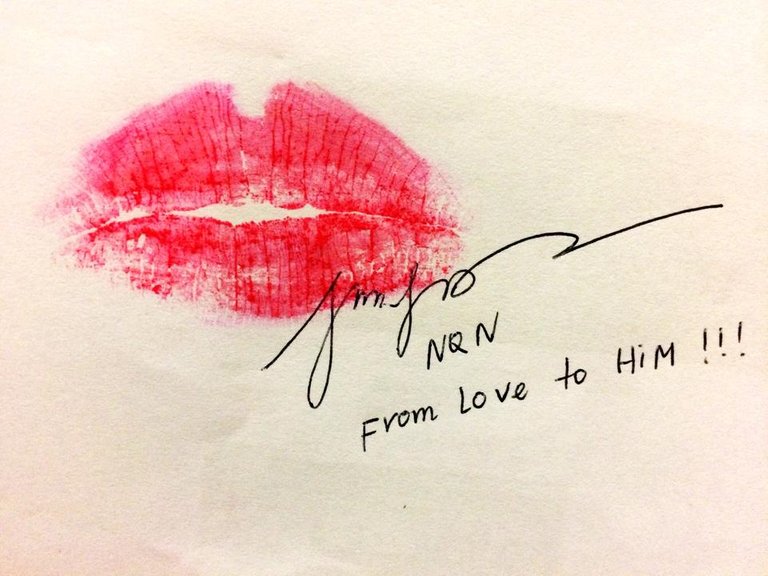 NQN
From Love to HiM !!!